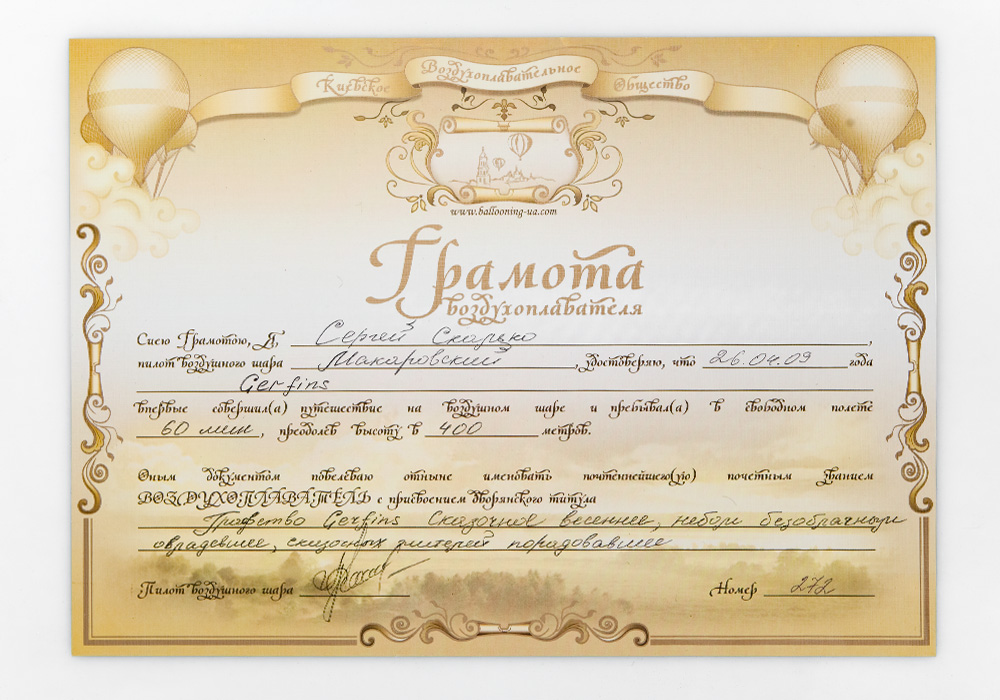 Киевское Воздухоплавательное Общество
www.ballooning-ua.com
Грамота
воздухоплавателя
Сиею Грамотою, Я, Сергей Скалько,
пилот воздушного шара Макаровский, удостоверяю, что 26.04.09 года
Gerfins
впервые совершил(а) путешествие на воздушном шаре и пребывал(а) в свободном полете
60 мин, преодолев высоту в 400 метров.
Оным документом повелеваю отныне именовать почтеннейшего(ую) почетным званием
ВОЗДУХОПЛАВАТЕЛЬ с присвоением дворянского титула
Графство Gerfins Сказочное весеннее, небом безоблачным
овладевшее, сказочных жителей порадовавшее
Пилот воздушного шара
Номер 272